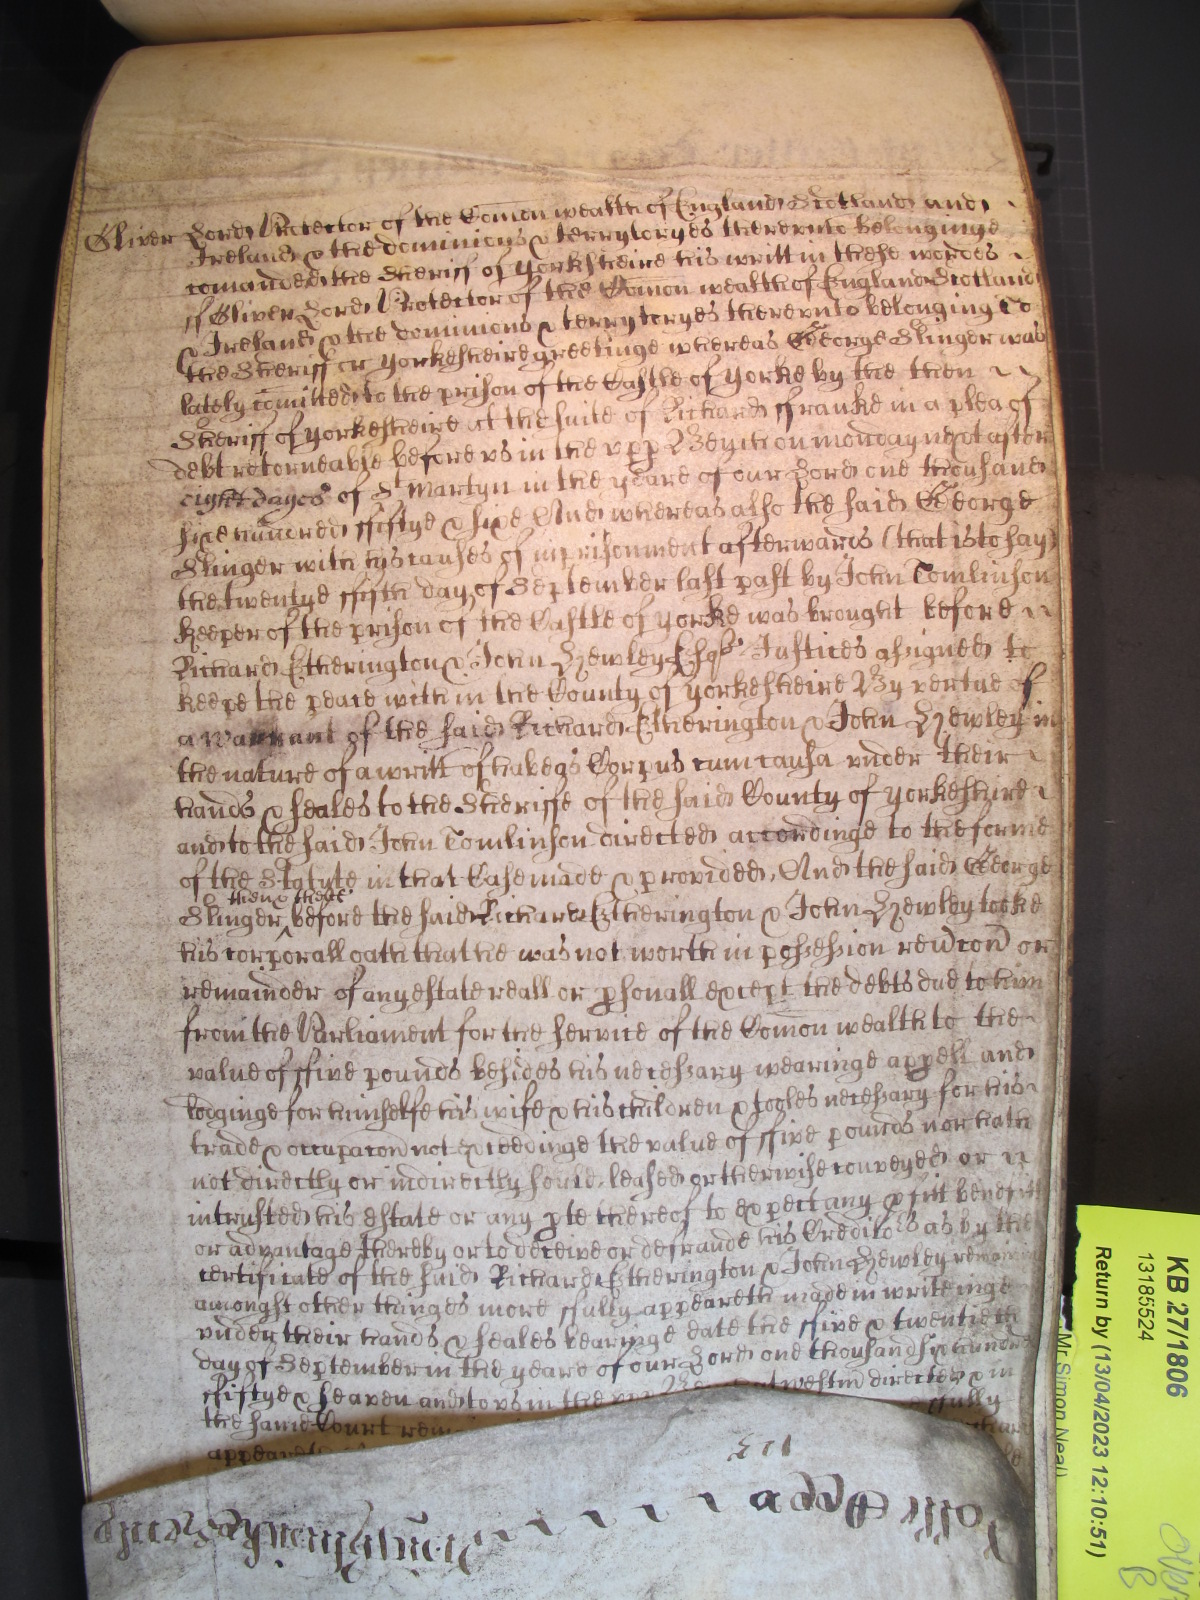 Oliver Lord Protector of the Com̄on wealth of England Scotland and
Ireland & the dominions & terrytoryes therevnto belonginge
comanded the Sheriff of Yorkesheire his writt in these wordes
ss Oliver Lord Protector of the Com̄on wealth of England Scotland
& Ireland & the dominions & terrytoryes therevnto belonging To
the Sheriff of Yorkesheire greetinge whereas George Slinger was
lately com̄itted to the prison of the Castle of Yorke by the then
Sheriff of Yorkesheire at the suite of Richard ffranke in a plea of
debt retorneable before vs in the vpp Bench on monday next after
eight dayes of St Martyn in the yeare of our Lord one thousand
sixe hundred ffiftye & sixe And whereas also the said George
Slinger with hys causes of imprisonment afterwards (that is to say)
the twentye ffifth day of September last past by John Tomlinson
keeper of the prison of the Castle of Yorke was brought before
Richard Etherington & John Hewley Esqrs Justices assigned to
keepe the peace with in the County of Yorkesheire By vertue of
a warrant of the said Richard Etherington & John Hewley in
the nature of a writt of habeas Corpus cum causa vnder their
hands & seales to the Sheriffe of the said County of Yorkesheire
and to the said John Tomlinson directed accordinge to the forme
of the Statute in that Case made & provided, And the said George
then & there
Slinger ^ before the said Richard Etherington & John Hewley tooke
his corporall oath that he was not worth in possession rev̄con̄ or
remainder of any estate reall or psonall except the debts due to him
from the Parliament for the service of the Com̄on wealth to the
value of ffive pounds besides his necessary wearinge appell and
lodginge for himselfe his wife & his children & tooles necessary for his
trade & occupacon̄ not exceedinge the value of ffive pounds nor hath
not directly or indirectly sould, leased or therwise conveyed or
intrusted his estate or any pte thereof to expect any pfitt benefitt
or advantage thereby or to deceive or defraude his Creditors as by the
certificate of the said Richard Etherington & John Hewley remaining
amongst other thinges more ffully appeareth made in writeinge
vnder their hands & seales bearinge date the ffive & twentieth
day of September in the yeare of our Lord one thousand six hundred
ffiftye & seaven and to vs in the vpp Be at Westm̄ directed & in
the same Court ffully
appeareth
KB 27/1806
13185524
Return by (13/04/2023 12:10:51)
Mr Simon Neal